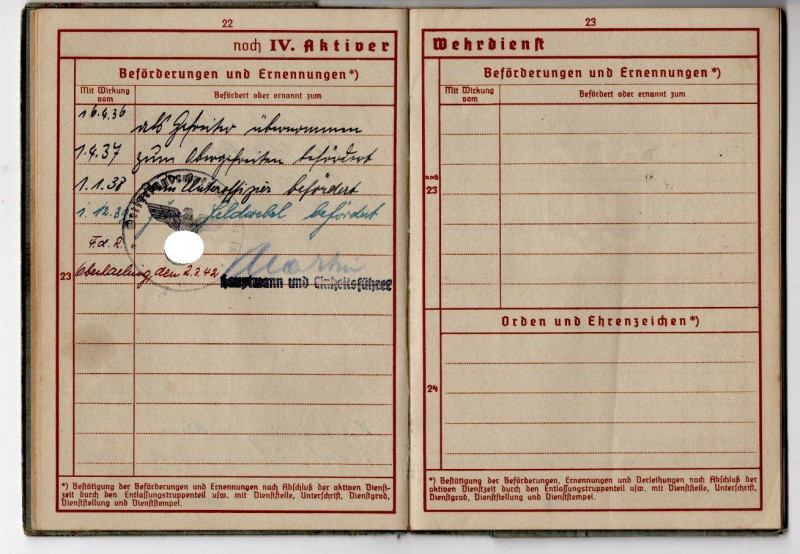 22
noch IV. Aktiver
Beförderungen und Ernennungen*)
Mit Wirkung
vom
Befördert oder ernannt zum
16.4.36 als Gefreiter übernommen
1.4.37 zum Obergefreiten befördert
1.1.38 zum Unteroffizier befördert
1.12.3 zum Feldwebel befördert
F.d.R.
23
den 2.2.42
Hauptmann und Einheitsführer
*) Bestätigung der Beförderungen und Ernennungen nach Abschluß der aktiven Dienst-
zeit durch den Entlassungstruppenteil usw. mit Dienststelle, Unterschrift, Dienstgrad,
Dienststellung und Dienststempel.
23
Wehrdienst
Beförderungen und Ernennungen*)
Mit Wirkung
vom
Befördert oder ernannt zum
noch
23
Orden und Ehrenzeichen*)
24
*) Bestätigung der Beförderungen, Ernennungen und Verleihungen nach Abschluß der
aktiven Dienstzeit durch den Entlassungstruppenteil usw. mit Dienststelle, Unterschrift,
Dienstgrad, Dienststellung und Dienststempel.